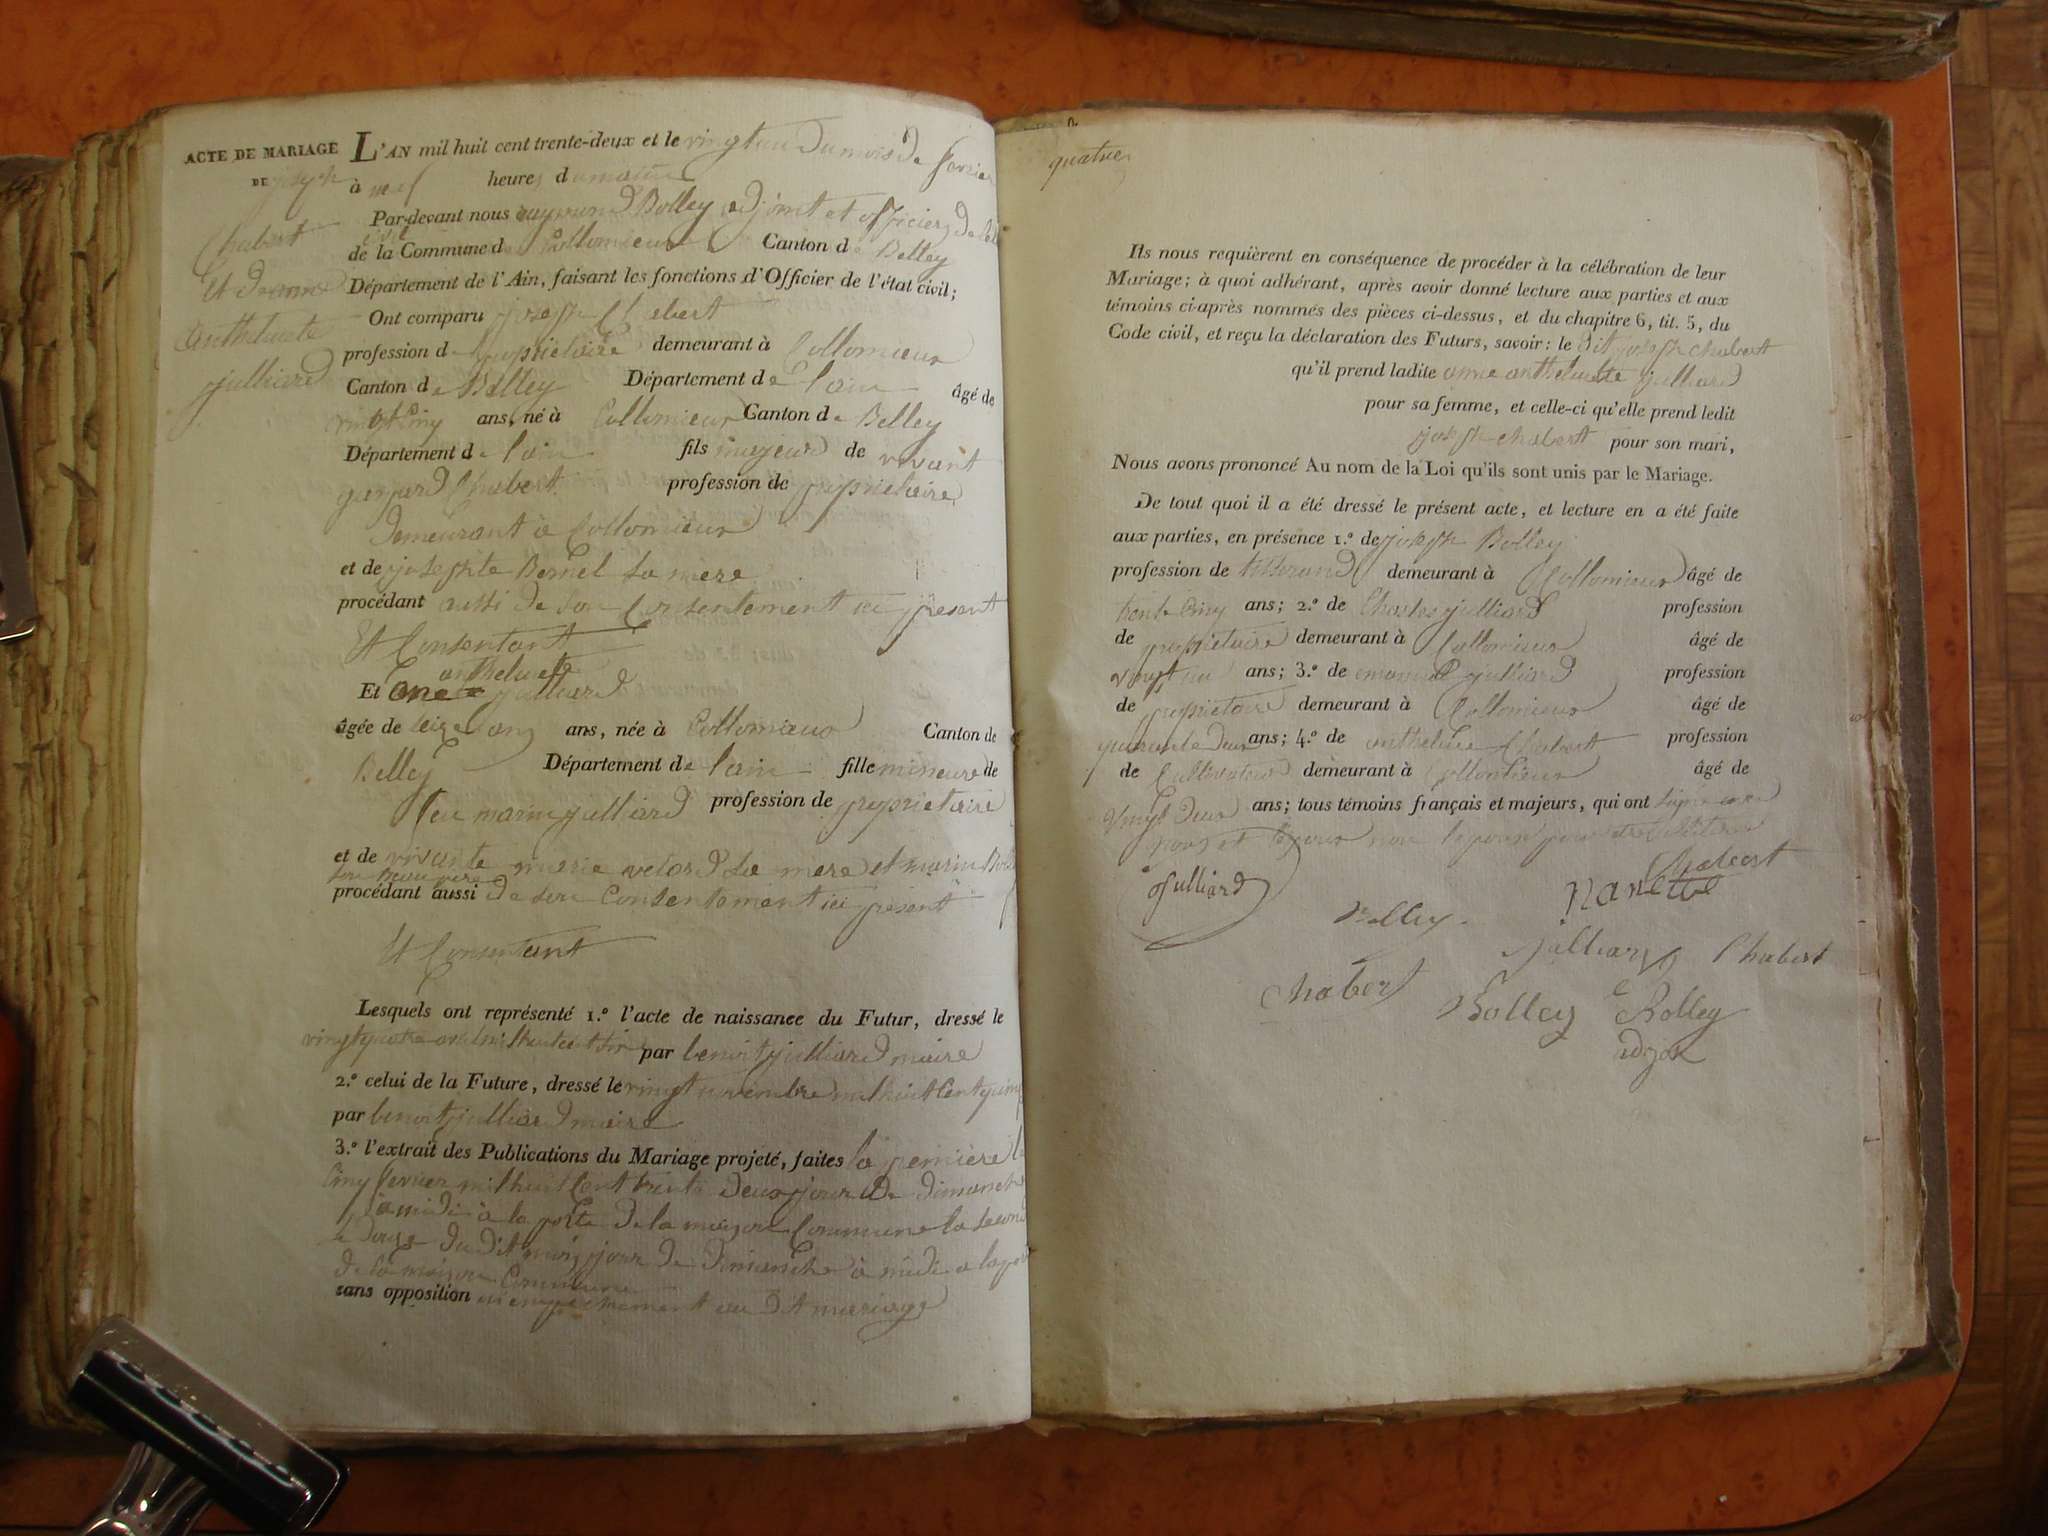 ACTE DE MARIAGE
DE joseph
Chabert
Et Jeanne
anthelmette
julliard
L'AN mil huit cent trente-deux et le vingt un du mois de fevrier
à neuf heures du matin
Par-devant nous Raymond Bolley adjoint et officier de l'etat
civil
de la Commune de Collomieux Canton de Belley
Département de l'Ain, faisant les fonctions d'Officier de l'état civil;
Ont comparu joseph Chabert
profession de propriétaire demeurant à Collomieux
Canton de Belley Département de lain âgé de
vingt cinq ans, né à Collomieux Canton de Belley
Département de lain fils majeur de vivant
Chabert profession de propriétaire
demeurant a Collomieux
et de josephte Bornel sa mere
procédant aussi de son Consentement ici présent
Et Consentant
anthelmette
Et anne julliard
âgée de seize ans ans, née à Collomieux Canton de
Belley Département de lain fille mineure de
feu marin julliard profession de propriétaire
et de vivante marie sa mere et marin
son Beau pere
procédant aussi de son Consentement ici présent
Et Consentant
Lesquels ont représenté 1.° l'acte de naissance du Futur, dressé le
vingt quatre mil huit cent six par benoit julliard maire
2.° celui de la Future, dressé le vingt novembre mil huit Cent quinze
par benoit julliard maire
3.° l'extrait des Publications du Mariage projeté, faites la premiere le
Cinq fevrier mil huit Cent trente deux jour de dimanche
a midi à la porte de la maison Commune la second
le douze dudit mois jour de dimanche à midi a la porte
de la maison Commune
sans opposition ni empechement au dit mariage
quatre
Ils nous requièrent en conséquence de procéder à la célébration de leur
Mariage; à quoi adhérant, après avoir donné lecture aux parties et aux
témoins ci-après nommés des pièces ci-dessus, et du chapitre 6, tit. 5, du
Code civil, et reçu la déclaration des Futurs, savoir: le dit joseph chabert
qu'il prend ladite anne anthelmette julliard
pour sa femme, et celle-ci qu'elle prend ledit
joseph chabert pour son mari,
Nous avons prononcé Au nom de la Loi qu'ils sont unis par le Mariage.
De tout quoi il a été dressé le présent acte, et lecture en a été faite
aux parties, en présence 1.° de joseph Bolley
profession de tisserand demeurant à Collomieux âgé de
trente Cinq ans; 2.° de Charles julliard profession
de propriétaire demeurant à Collomieux âgé de
vingt un ans; 3.° de emanuel julliard profession
de propriétaire demeurant à Collomieux âgé de
quarante deux ans; 4.° de anthelme Chabert profession
de Cultivateur demeurant à Collomieux âgé de
vingt deux ans; tous témoins français et majeurs, qui ont signé avec
nous et
Julliard
Bolley
Chabert
Nanette
Julliard
Chabert
Chabert
Bolley
Bolley
adjoit